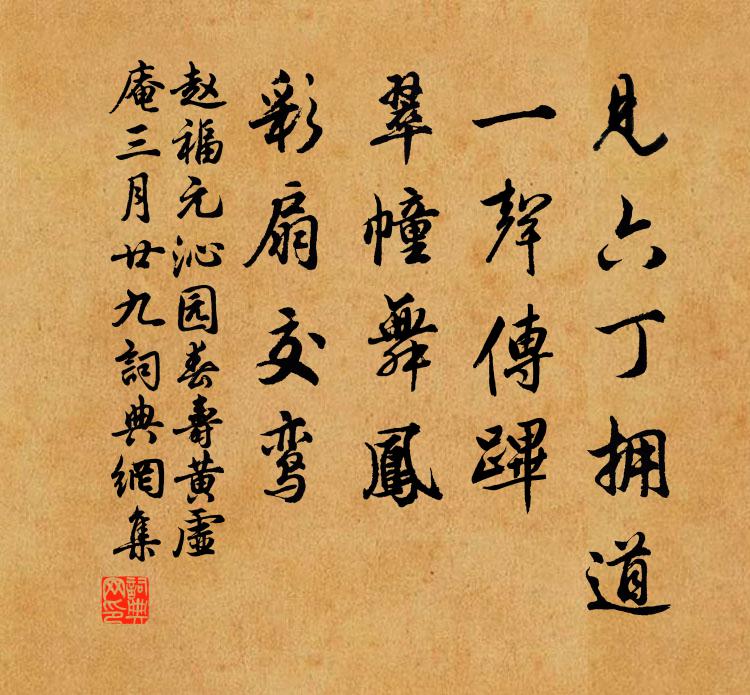 见六丁拥道
一聲傳蹕
翠幢舞鳳
彩扇交鸾
赵福元沁园春壽黄虚
庵三月廿九詞典網集
詞典
网印